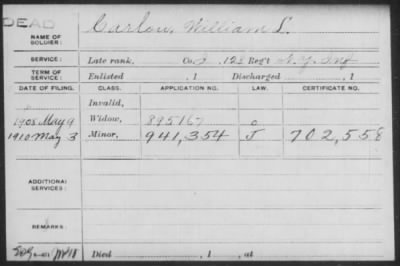 DEAD
NAME OF SOLDIER: Carlon, William L.
SERVICE: Late rank, Co. 123 Reg't N.Y. Inf
TERM OF SERVICE: Enlisted , 1 Discharged , 1
DATE OF FILING. CLASS. APPLICATION NO. LAW. CERTIFICATE NO.
Invalid,
1908 May 9 Widow, 895167 o
1910 May 3 Minor, 941,354 J 702,558
ADDITIONAL SERVICES:
REMARKS:
Died , 1 , at